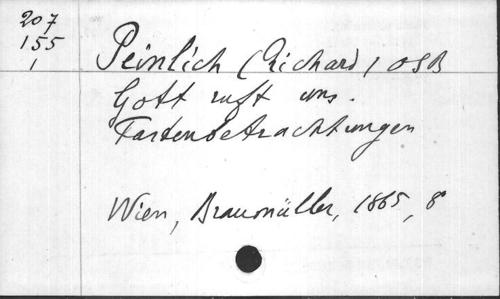 207
155
1
Peinlich (Richard) OSB
Gott ruft uns.
Fastenbetrachtungen
Wien, Braumüller, 1865, 8°